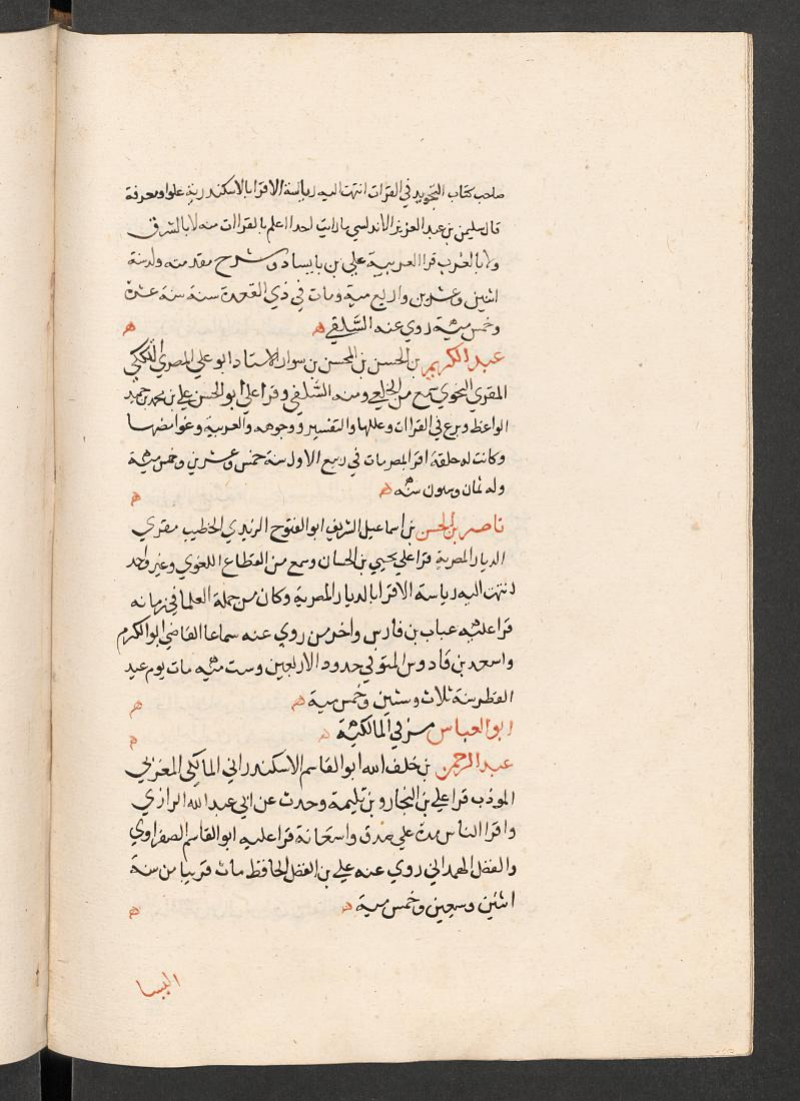 صاحب كتاب التجريد في القرات انتهت اليه رياسة الاقرا بالاسكندرية علوا ومعرفة
قال سليمن بن عبد العزيز الاندلسي ما رايت احدا اعلم بالقراات منه لا بالشرق
ولا بالغرب قرا العربية علي بن بابيساد وشرح مقدمته ولد سنة
اثنين وعشرين واربع مية ومات في ذي القعدة سنة ستة عشرة
وخمس مئة روي عنه السلفي ه ه
عبد الكريم بن الحسن بن المحسن بن سوار الاستاد ابو علي المصري التككي
المقري النحوي سمع من الخلعي ومنه السلفي وقرا علي ابو الحسن علي بن محمد بن حميد
الواعظ وبرع في القراات وعللها والتفسير ووجوهه والعربية وغوامضها
وكانت له حلقة اقرا بمصر مات في ربيع الاول سنة خمس وعشرين وخمس مئة
وله ثمان وستون سنه ه ه
ناصر بن الحسن بن اسماعيل الشريف ابو الفتوح الزيدي الخطيب مقري
الديار المصرية قرا علي يحيي بن الخساب وسمع من القطاع اللغوي وغير واحد
انتهت اليه رياسة الاقرا بالديار المصرية وكان من جملة العلما في زمانه
قرا عليه عياب بن فارس واخر من روي عنه سماعا القاضي ابو الكرم
واسعد بن قادوس المتوفي حدود الاربعين وست مئه مات يوم عيد
الفطر سنة ثلاث وستين وخمس مية ه ه
ابو العباس مر في المالكية ه ه
عبد الرحمن بن خلف الله ابو القاسم الاسكندراني المالكي المغربي
المودب قرا علي بن الفحار وبن بليمة وحدث عن ابي عبد الله الرازي
واقرا الناس مدة علي صدق واستحانة قرا عليه ابو القاسم الصفراوي
والفضل الهمداني روي عنه علي بن الفضل الحافظ مات قريبا من سنة
اثنين وسبعين وخمس مية ه ه
اليسا